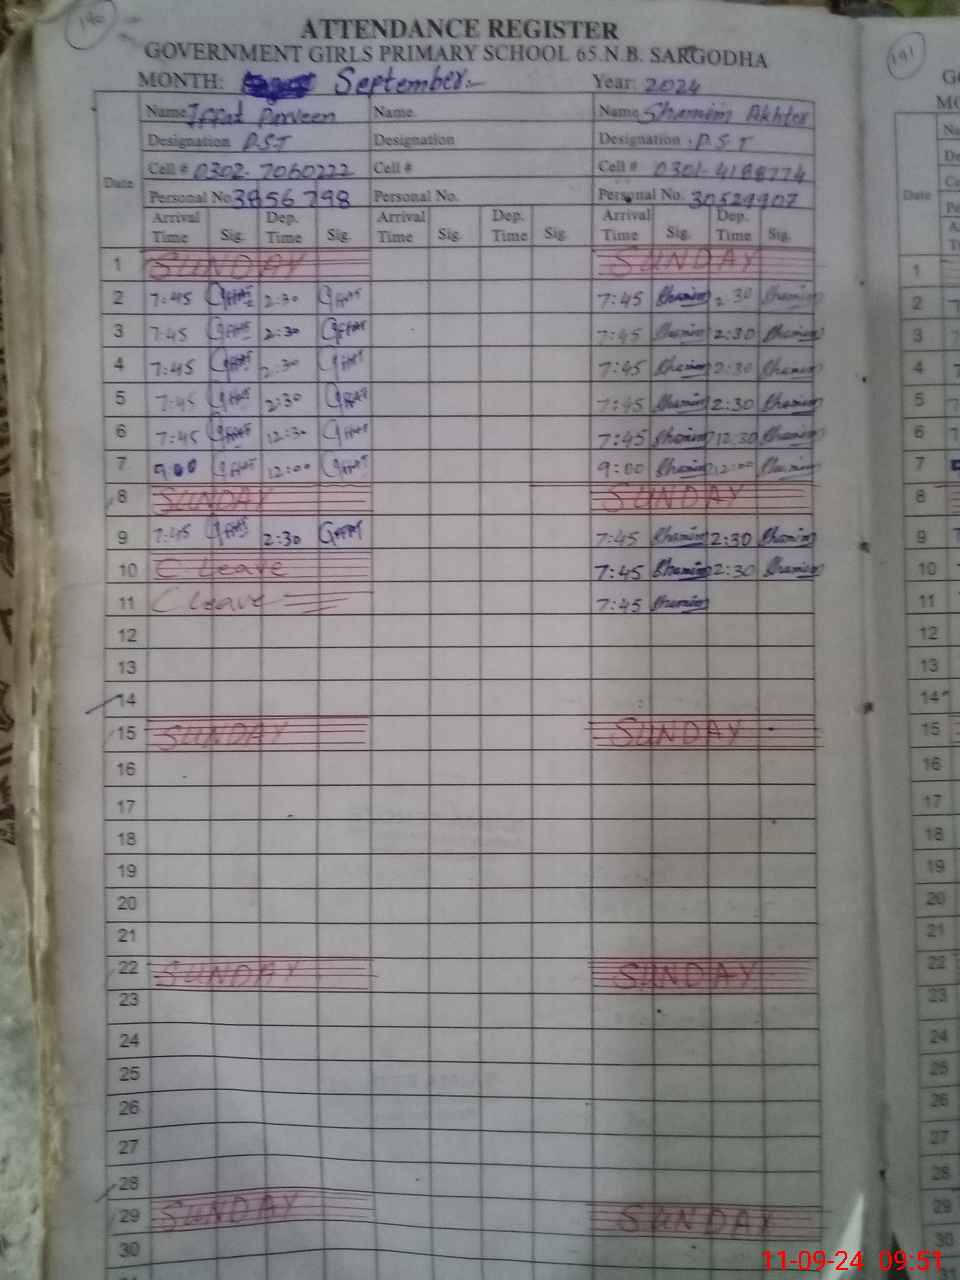 190
ATTENDANCE REGISTER
GOVERNMENT GIRLS PRIMARY SCHOOL 65.N.B. SARGODHA
191
MONTH: September Year: 2024
Name Iffat Parveen Name Name Shamim Akhter
Designation P.S.T Designation Designation P.S.T
Cell # 0302-7060222 Cell # Cell # 0301-4188774
Date
Personal No. 3856798 Personal No. Personal No. 30529907
Arrival Time Sig. Dep. Time Sig. Arrival Time Sig. Dep. Time Sig. Arrival Time Sig. Dep. Time Sig.
1 SUNDAY SUNDAY 1
2 7:45 Iffat 2:30 Iffat 7:45 Shamim 2:30 Shamim 2
3 7:45 Iffat 2:30 Iffat 7:45 Shamim 2:30 Shamim 3
4 7:45 Iffat 2:30 Iffat 7:45 Shamim 2:30 Shamim 4
5 7:45 Iffat 2:30 Iffat 7:45 Shamim 2:30 Shamim 5
6 7:45 Iffat 12:30 Iffat 7:45 Shamim 12:30 Shamim 6
7 9:00 Iffat 12:00 Iffat 9:00 Shamim 12:00 Shamim 7
8 SUNDAY SUNDAY 8
9 7:45 Iffat 2:30 Iffat 7:45 Shamim 2:30 Shamim 9
10 C leave 7:45 Shamim 2:30 Shamim 10
11 C leave 7:45 Shamim 11
12 12
13 13
14 14
15 SUNDAY SUNDAY 15
16 16
17 17
18 18
19 19
20 20
21 21
22 SUNDAY SUNDAY 22
23 23
24 24
25 25
26 26
27 27
28 28
29 SUNDAY SUNDAY 29
30 30
11-09-24 09:51